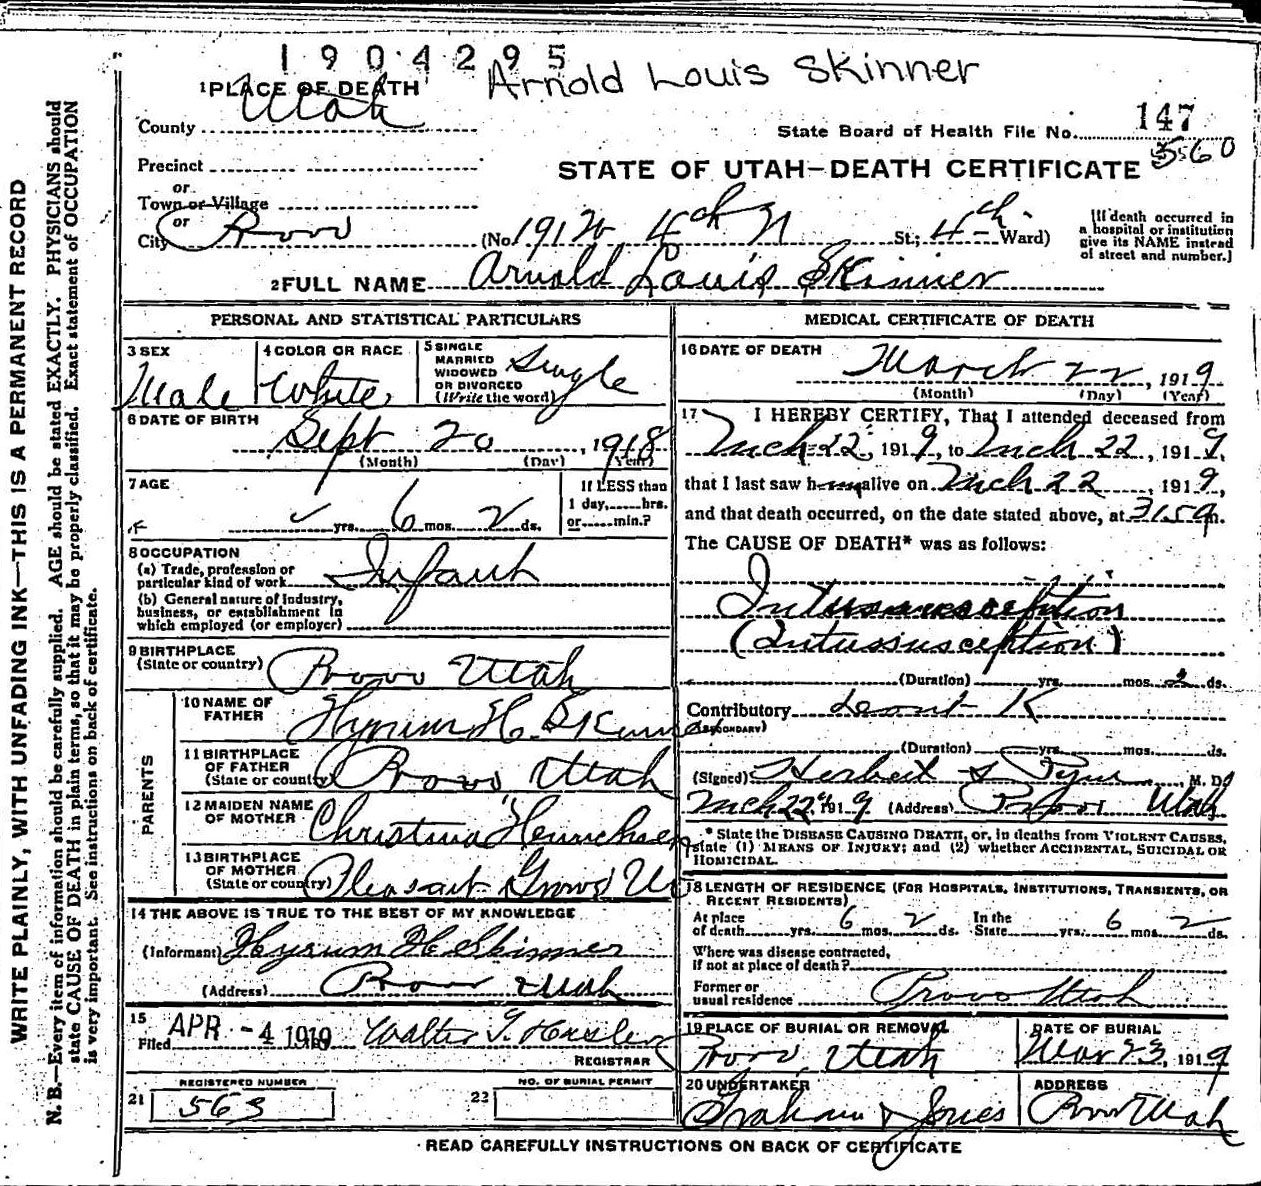 1904295
Arnold Louis Skinner
1 PLACE OF DEATH
Utah
County
147
State Board of Health File No.
560
Precinct
or
STATE OF UTAH—DEATH CERTIFICATE
Town or Village
or
City Provo (No. 4th N St.; 4th Ward)
[If death occurred in
a hospital or institution
give its NAME instead
of street and number.]
2 FULL NAME Arnold Louis Skinner
PERSONAL AND STATISTICAL PARTICULARS
3 SEX
Male
4 COLOR OR RACE
White
5 SINGLE
MARRIED
WIDOWED
OR DIVORCED
(Write the word)
Single
6 DATE OF BIRTH
Sept 20, 1918
(Month) (Day) (Year)
7 AGE
yrs. 6 mos. 2 ds.
If LESS than
1 day, hrs.
or min.?
8 OCCUPATION
(a) Trade, profession or
particular kind of work Infant
(b) General nature of industry,
business, or establishment in
which employed (or employer)
9 BIRTHPLACE
(State or country) Provo Utah
PARENTS
10 NAME OF
FATHER Hyrum H. Skinner
11 BIRTHPLACE
OF FATHER
(State or country) Provo Utah
12 MAIDEN NAME
OF MOTHER Christina Henrichsen
13 BIRTHPLACE
OF MOTHER
(State or country) Pleasant Grove Ut
14 THE ABOVE IS TRUE TO THE BEST OF MY KNOWLEDGE
(Informant) Hyrum H Skinner
(Address) Provo Utah
15
Filed APR -4 1919 Walter T.
REGISTRAR
REGISTERED NUMBER
21 563
NO. OF BURIAL PERMIT
22
MEDICAL CERTIFICATE OF DEATH
16 DATE OF DEATH
March 22, 1919
(Month) (Day) (Year)
17 I HEREBY CERTIFY, That I attended deceased from
Mch 22, 1919, to Mch 22, 1919,
that I last saw h alive on Mch 22, 1919,
and that death occurred, on the date stated above, at m.
The CAUSE OF DEATH* was as follows:
(Intussusception)
(Duration) yrs. mos. 2 ds.
Contributory
(SECONDARY)
(Duration) yrs. mos. ds.
(Signed) Herbert S Pyne, M. D.
Mch 22, 1919 (Address) Provo Utah
* State the DISEASE CAUSING DEATH, or, in deaths from VIOLENT CAUSES,
state (1) MEANS OF INJURY; and (2) whether ACCIDENTAL, SUICIDAL OR
HOMICIDAL.
18 LENGTH OF RESIDENCE (FOR HOSPITALS, INSTITUTIONS, TRANSIENTS, OR
RECENT RESIDENTS)
At place
of death yrs. 6 mos. 2 ds.
In the
State yrs. 6 mos. 2 ds.
Where was disease contracted,
if not at place of death?
Former or
usual residence Provo Utah
19 PLACE OF BURIAL OR REMOVAL
Provo, Utah
DATE OF BURIAL
Mar 23, 1919
20 UNDERTAKER
Graham & Jones
ADDRESS
Provo Utah
READ CAREFULLY INSTRUCTIONS ON BACK OF CERTIFICATE
WRITE PLAINLY, WITH UNFADING INK—THIS IS A PERMANENT RECORD
N. B.—Every item of information should be carefully supplied. AGE should be stated EXACTLY. PHYSICIANS should
state CAUSE OF DEATH in plain terms, so that it may be properly classified. Exact statement of OCCUPATION
is very important. See instructions on back of certificate.